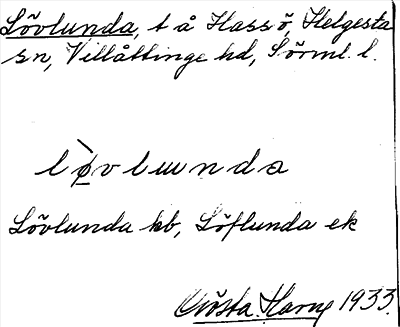 Lövlunda, t å Hassö, Helgesta
sn, Villåttinge hd, Sörml. l.
lø̀vlɯnda
Lövlunda kb, Löflunda ek
Gösta Harne 1933.